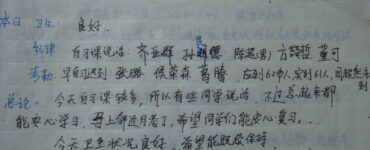 本日卫生: 良好.
纪律: 自习课说话: 齐亚群 孙民德 陈超(男) 方喆哲 董可
考勤: 早自习迟到 张璐 侯荣森 葛腾 应到62人,实到61人,田超然未到
总论: 今天自习课较多, 所以有些同学说话. 不过总起来都
能安心学习. 马上邻近月考了, 希望同学们能安心复习.
今天卫生状况良好, 希望能继续保持.